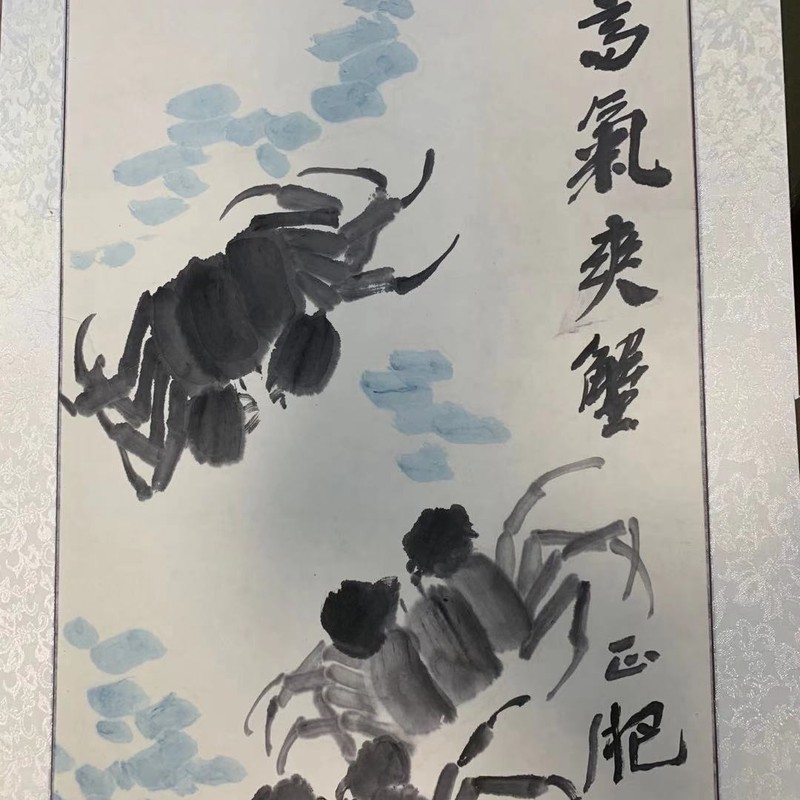 高氣爽蟹正肥